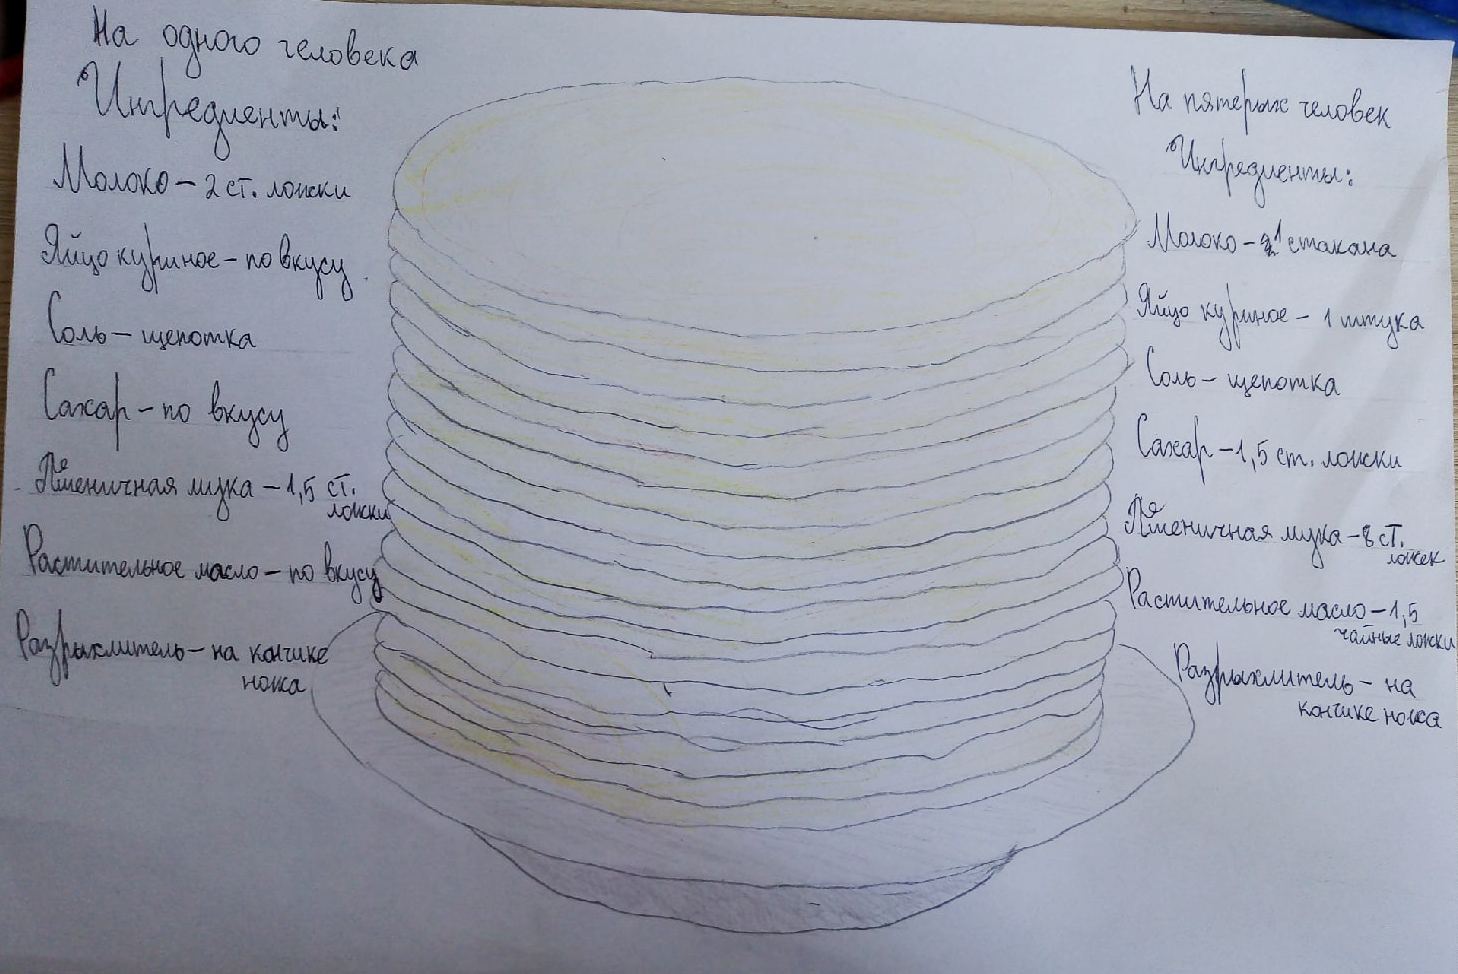 На одного человека
Ингредиенты:
Молоко – 2 ст. ложки
Яйцо куриное – по вкусу
Соль – щепотка
Сахар – по вкусу
Пшеничная мука – 1,5 ст.
ложки
Растительное масло – по вкусу
Разрыхлитель – на кончике
ножа
На пятерых человек
Ингредиенты:
Молоко – 1 стакана
Яйцо куриное – 1 штука
Соль – щепотка
Сахар – 1,5 ст. ложки
Пшеничная мука – 8 ст.
ложек
Растительное масло – 1,5
чайные ложки
Разрыхлитель – на
кончике ножа